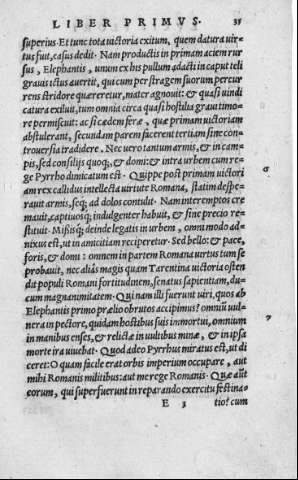 LIBER PRIMVS. 35
superius. Et tunc tota victoria exitum, quem datura vir-
tus fuit, casus dedit. Nam productis in primam aciem rur
sus, Elephantis, unum ex his pullum adacti in caput teli
gravis ictus avertit, qui cum per stragem suorum percur
rens stridore quæreretur, mater agnouit: & quasi vindi
catura exiluit, tum omnia circa quasi hostilia graui timo-
re permiscuit: ac sic eædem feræ, quæ primam victoriam
abstulerant, secundam parem fecerunt tertiam sine con-
trouersia tradidere. Nec uero tantum armis, & in cam-
pis, sed consilijs quoq;, & domi: & intra urbem cum re-
ge Pyrrho dimicatum est. Quippe post primam victori
am rex callidus intellecta uirtute Romana, statim despe-
rauit armis, seq; ad dolos contulit. Nam interemptos cre
mauit, captiuosq; indulgenter habuit, & sine precio re-
stituit. Missisq; deinde legatis in urbem, omni modo ad-
nixus est, ut in amicitiam reciperetur. Sed bello: & pace,
foris, & domi: omnem in partem Romana uirtus tum se
probauit, nec alia magis quam Tarentina victoria osten
dit populi Romani fortitudinem, senatus sapientiam, du-
cum magnanimitatem. Qui nam illi fuerunt uiri, quos ab
Elephantis primo prælio obrutos accipimus? omniū vul-
nera in pectore, quidam hostibus suis immortui, omnium
in manibus enses, & relictæ in uultibus minæ, & in ipsa
morte ira uiuebat. Quod adeo Pyrrhus miratus est, ut di
ceret: O quam facile erat orbis imperium occupare, aut
mihi Romanis militibus: aut me rege Romanis. Quæ aūt
eorum, qui superfuerunt in reparando exercitu festina-
E 3 tio? cum
6
7